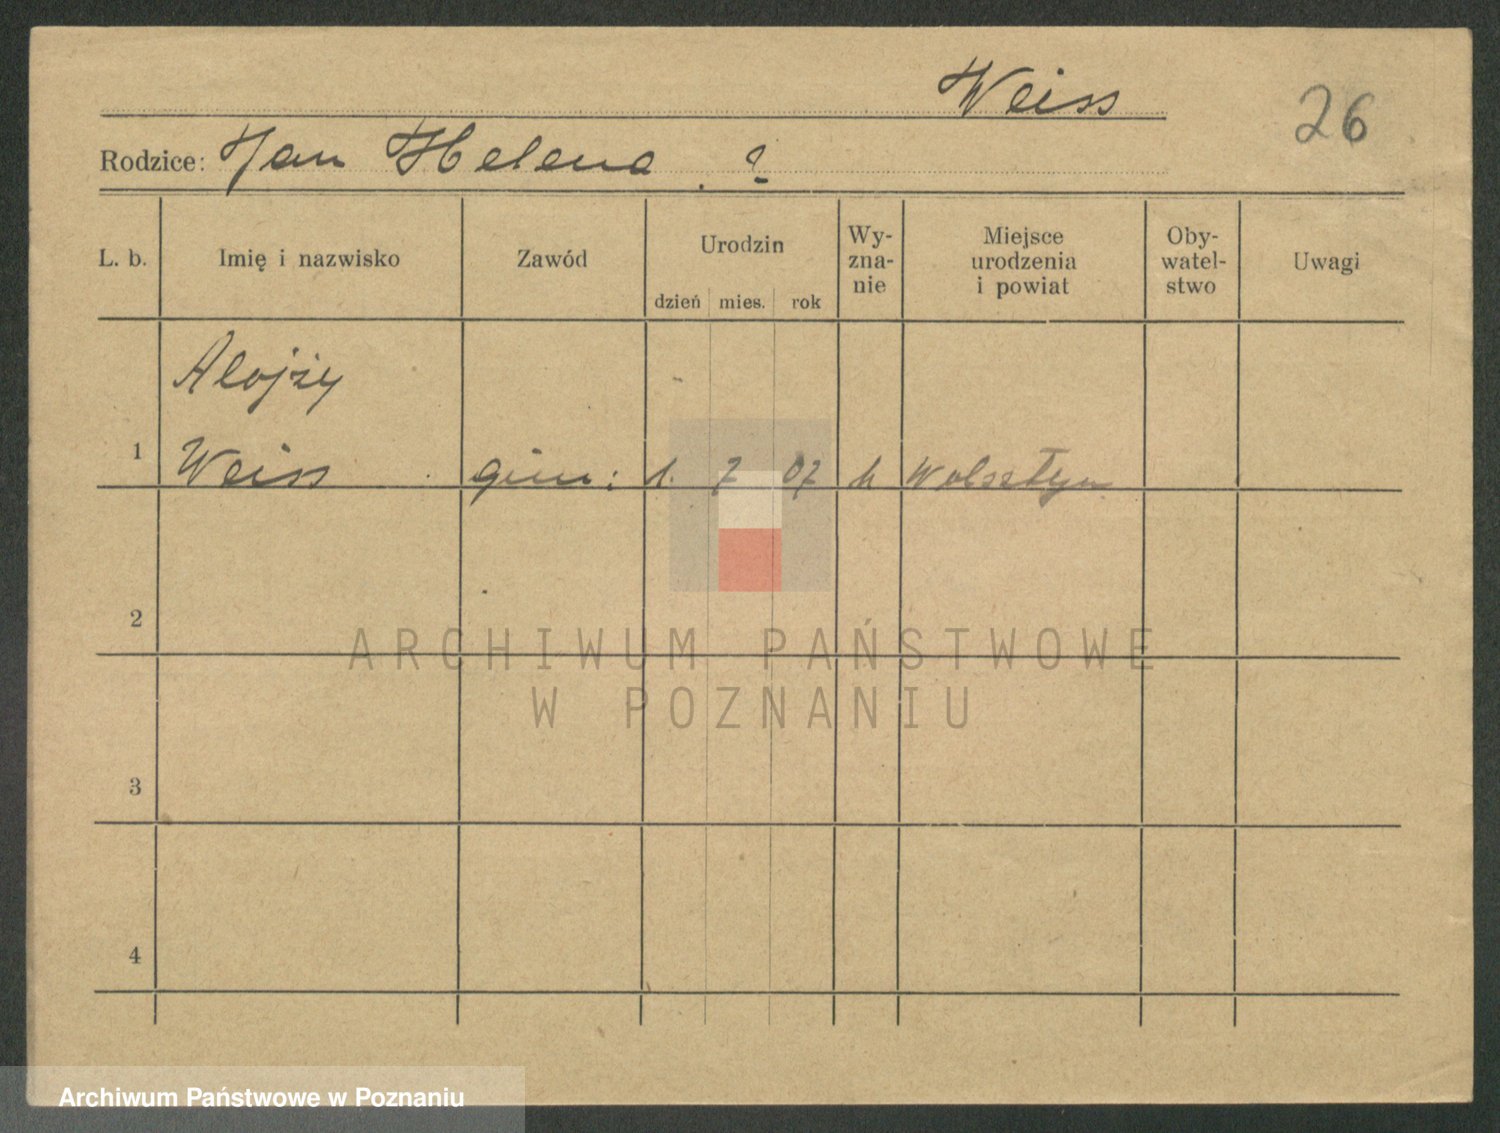 Weiss
26
Rodzice: Jan Helena . ?
L. b.
Imię i nazwisko
Zawód
Urodzin
dzień mies. rok
Wy-
zna-
nie
Miejsce
urodzenia
i powiat
Oby-
watel-
stwo
Uwagi
Alojzy
1 Weiss gim: 1. 7 07 k Wolsztyn
2
ARCHIWUM PAŃSTWOWE
W POZNANIU
3
4
Archiwum Państwowe w Poznaniu